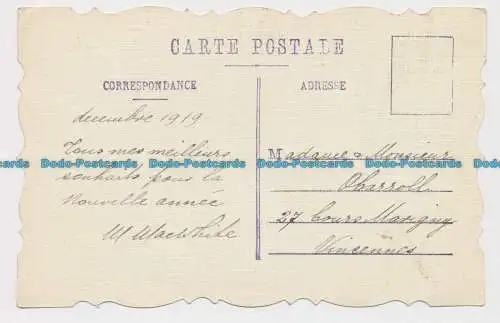 CARTE POSTALE
CORRESPONDANCE
ADRESSE
decembre 1919
Tous mes meilleurs
souhaits pour la
Nouvelle année
M MacWhite
Madame & Monsieur
O'Carroll
27 Cours Marigny
Vincennes
Dodo-Postcards Dodo-Postcards Dodo-Postcards Dodo-Postcards